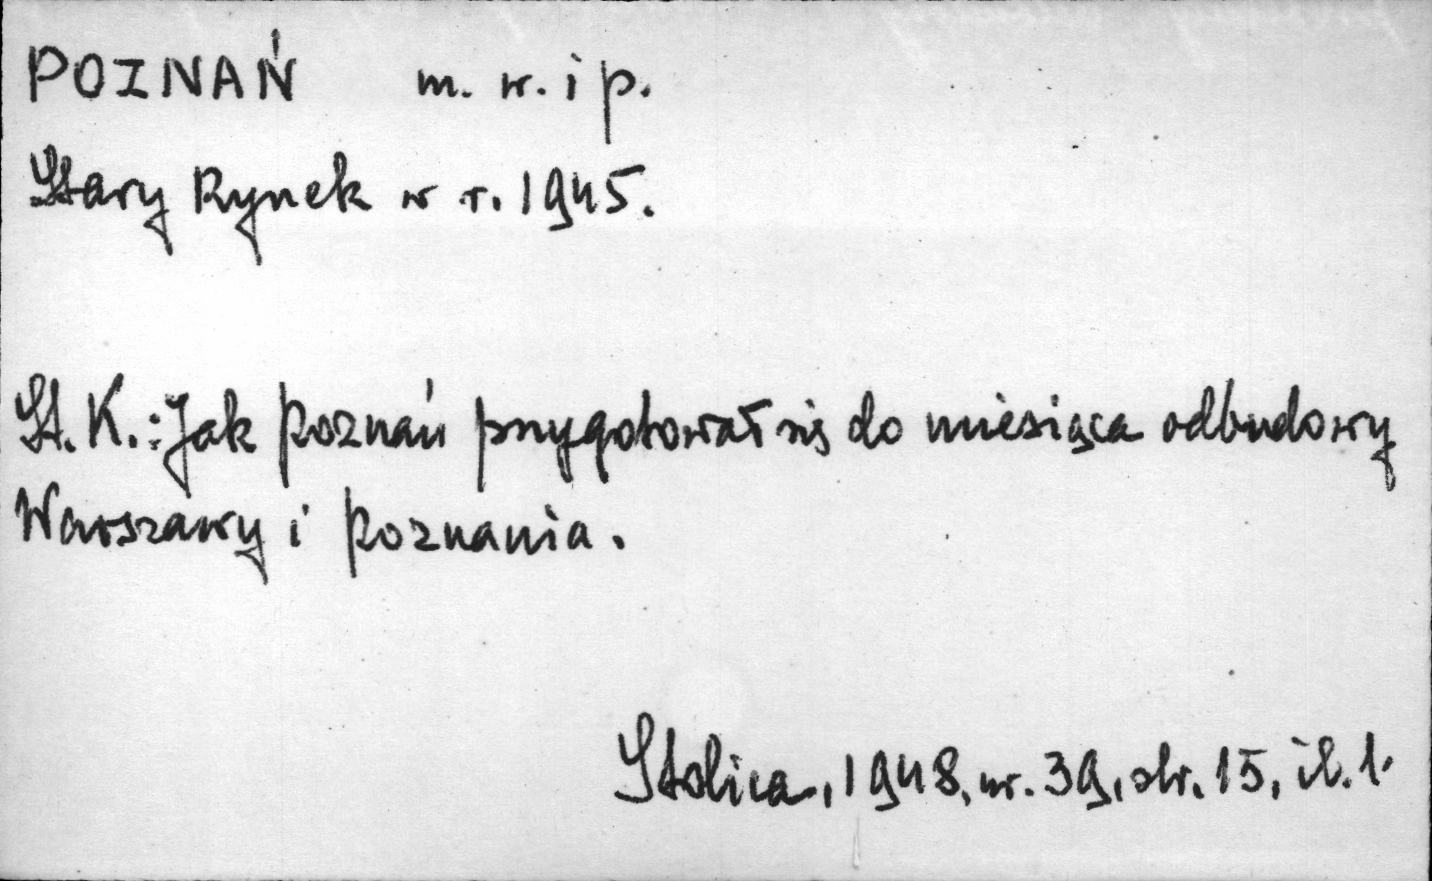 POZNAŃ m. w. i p.
Stary Rynek w r. 1945.
St. K.: Jak Poznań przygotował się do miesiąca odbudowy
Warszawy i Poznania.
Stolica, 1948, nr. 39, str. 15, il. 1.